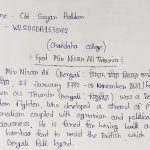 Name - Cdt Sayan Halder
WB20SDA153542
(Chakdaha college)
Syed Mir Nisar Ali Titumir:
Mir Nisar Ali (Bengali:
27 January 1782 - 19 November 1831)
known as Titumir (Bengali: তিতুমীর) was a
freedom fighter, who developed a strand of M
nationalism coupled with agrarian and political
consciousness. He is famed for having built a
bamboo fort to resist the British which
Bengali folk legend.